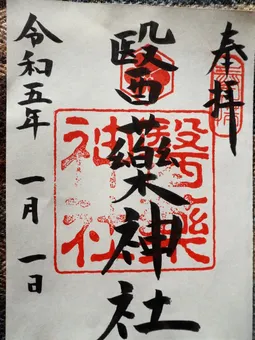 奉拝
醫薬神社
令和五年 一月 一日
醫薬
神社